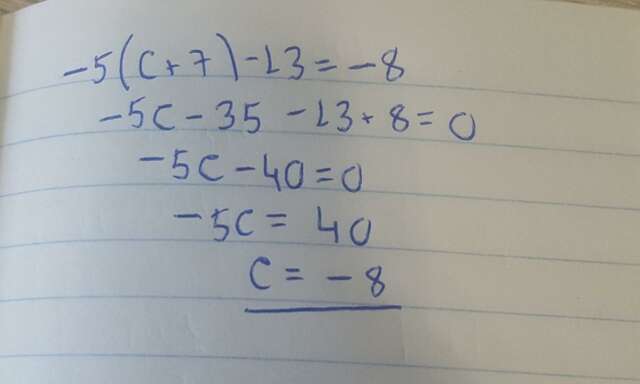 -5(c+7)-13=-8
-5c-35-13+8=0
-5c-40=0
-5c=40
c=-8